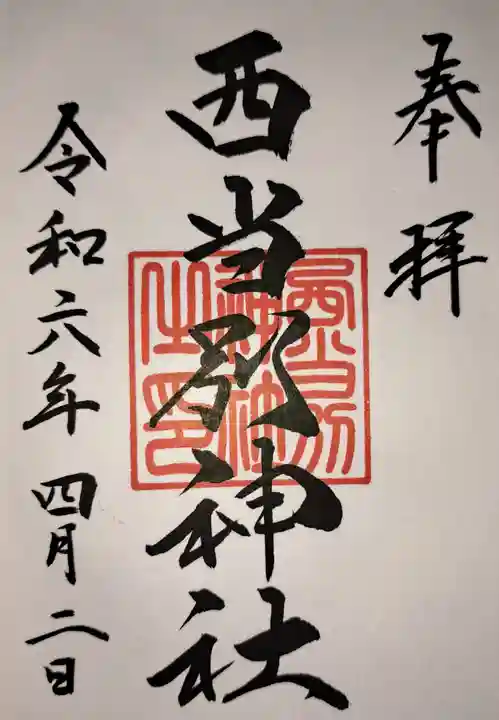 奉拝
西当別神社
令和六年四月二日